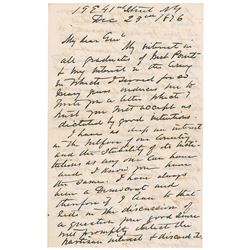 19 E 41st Street NY
Dec 23rd 1876
My dear Genl
My interest in
all graduates of West Point
& my interest in the Army
in which I served for so
many years induces me to
write you a letter which I
trust you will accept as
dictated by good intentions
I have as deep an interest
in the welfare of our Country
and the stability of its insti-
tutions as any one can have
and I know you have
the same. I have always
been a Democrat and
therefore if I lean to that
side in the discussion of
a question your good sense
will promptly detect the
partisan interest & discard it.